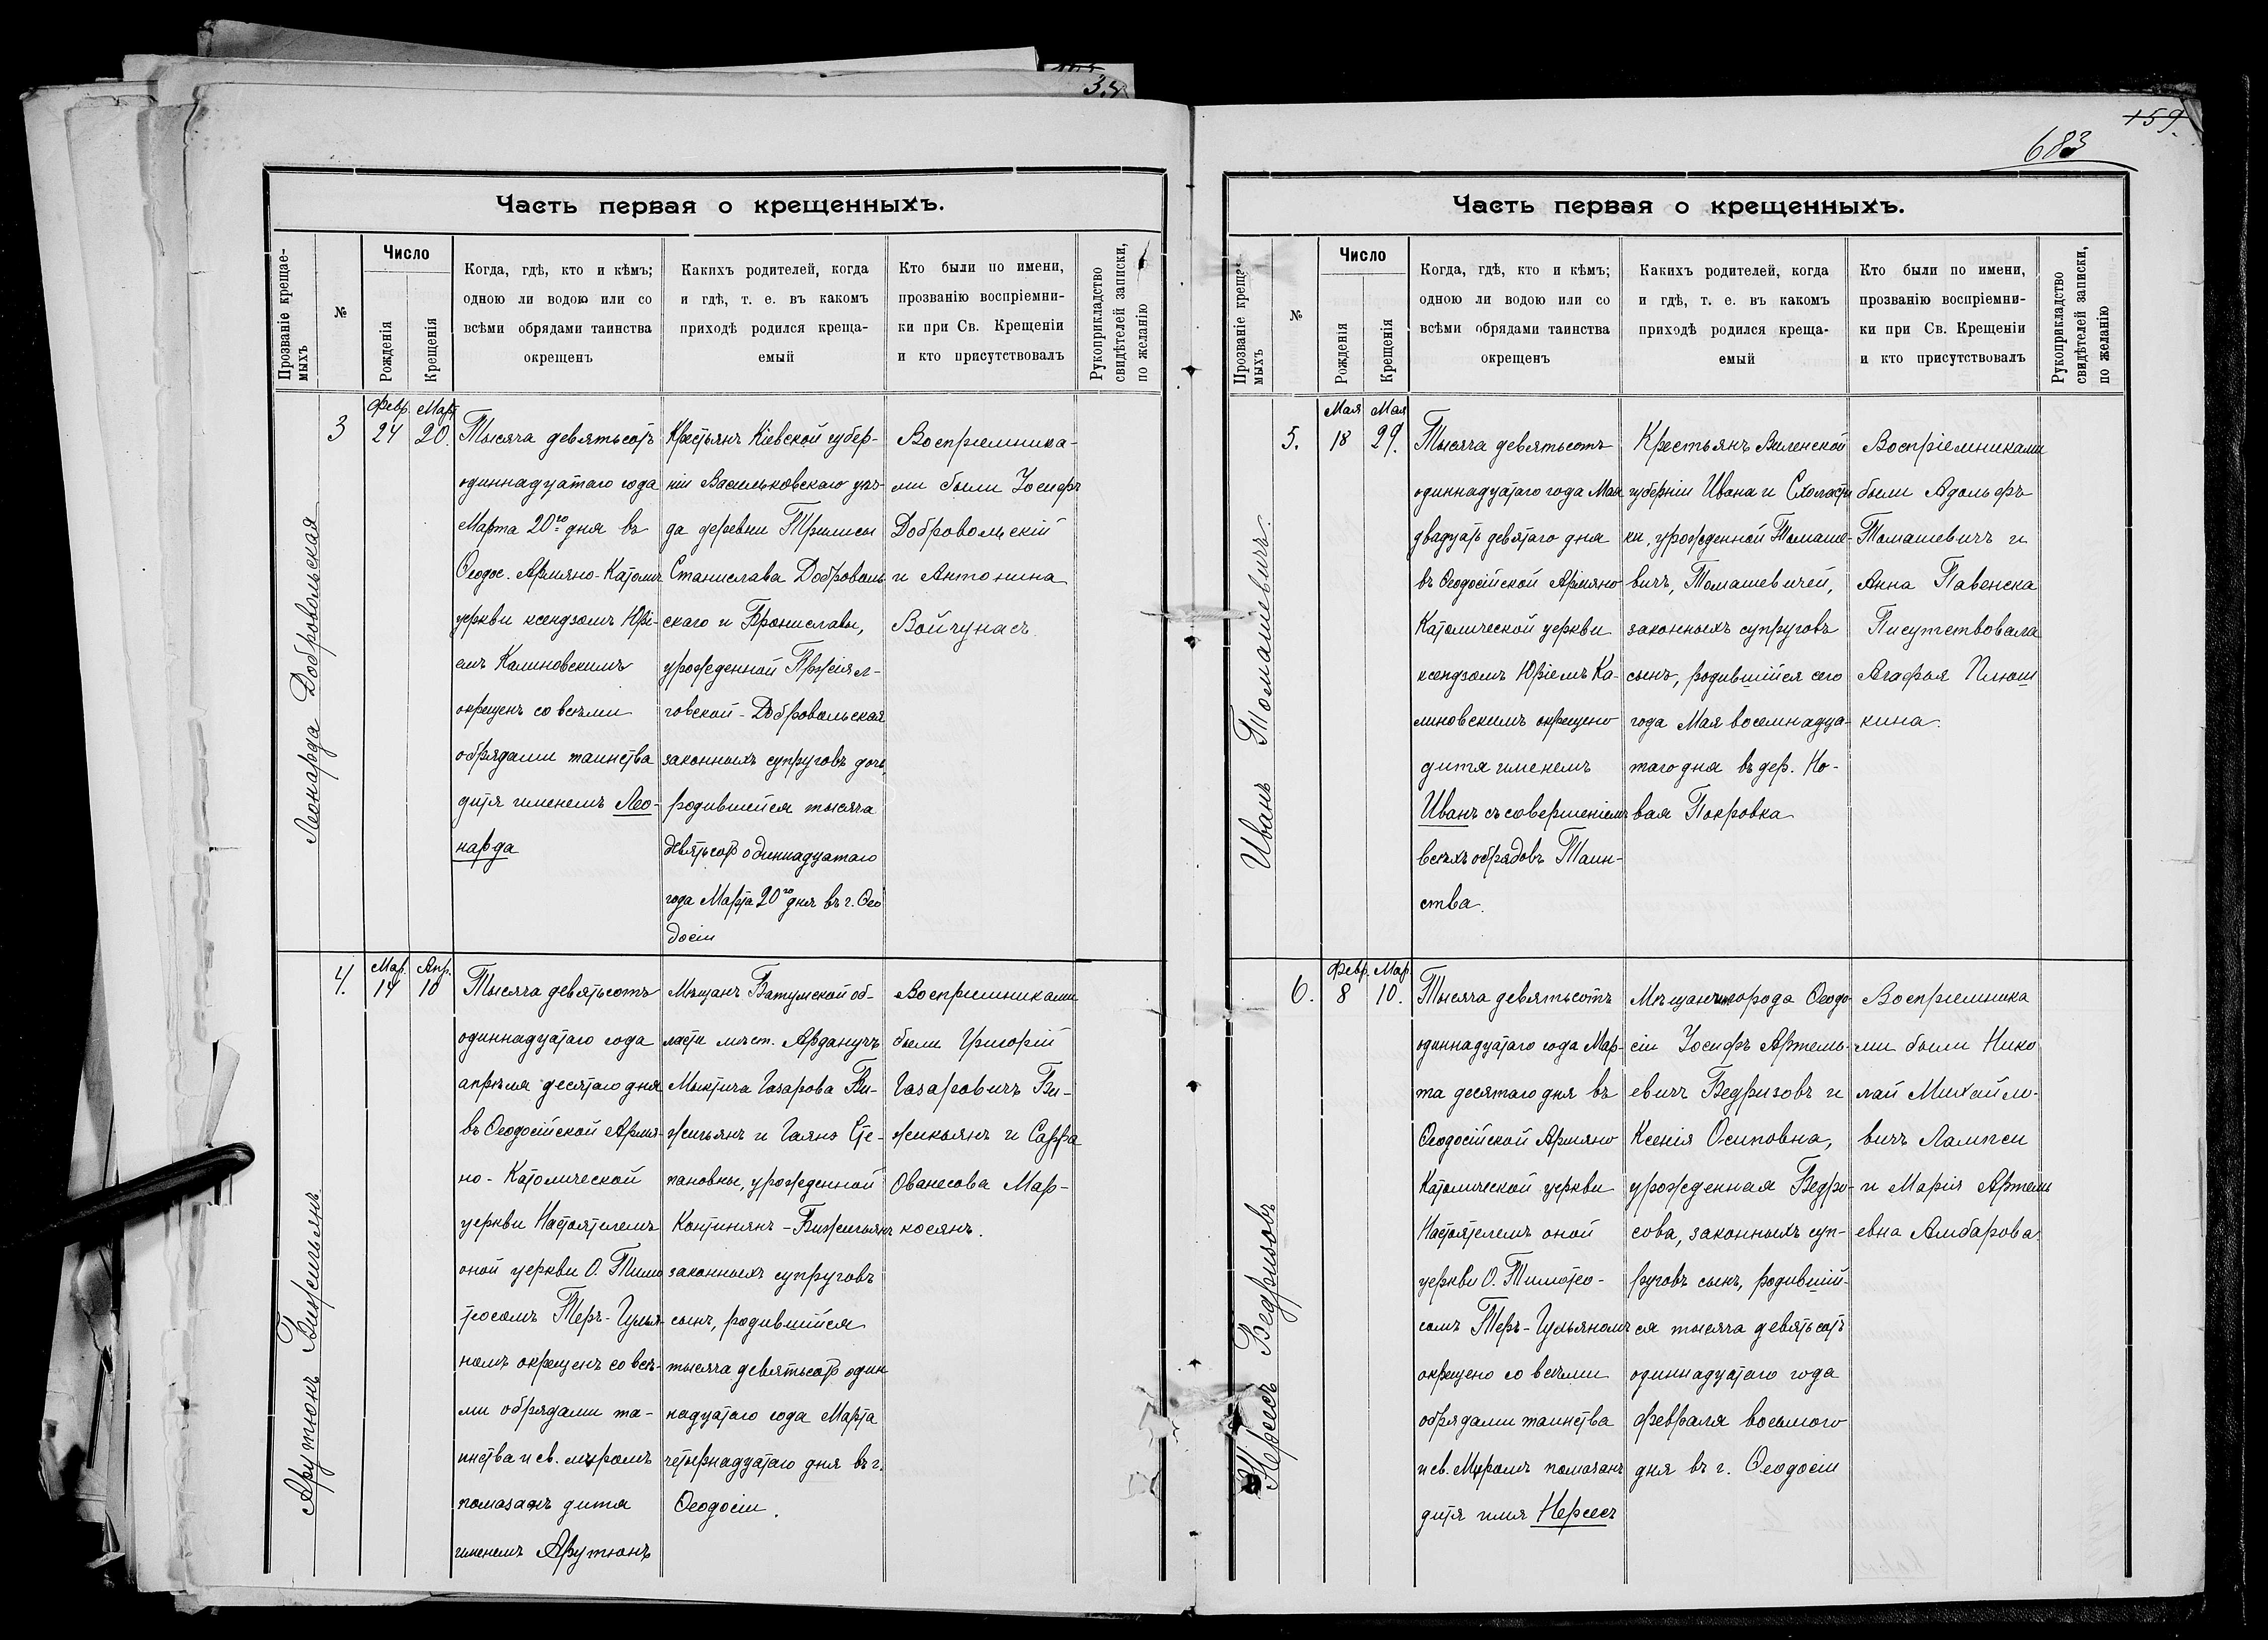 3.5
159.
683
Часть первая о крещенныхъ.
Прозваніе крещае-
мыхъ
№
Число
Рожденія
Крещенія
Когда, гдѣ, кто и кѣмъ;
одною ли водою или со
всѣми обрядами таинства
окрещенъ
Какихъ родителей, когда
и гдѣ, т. е. въ какомъ
приходѣ родился креща-
емый
Кто были по имени,
прозванію воспріемни-
ки при Св. Крещеніи
и кто присутствовалъ
Рукоприкладство
свидѣтелей записки,
по желанію
Леонарда Добровольская
3
Февр.
24
Март
20.
Тысяча девятьсотъ
одиннадцатаго года
Марта 20го дня въ
Ѳеодос. Армяно-Католич
церкви ксендзомъ Юрі-
емъ Калиновскимъ
окрещенъ со всѣми
обрядами таинства
дитя именемъ Лео-
нарда
Крестьянъ Кіевской губер-
ніи Васильковскаго уѣз-
да деревни Трилисы
Станислава Доброволь
скаго и Брониславы,
урожденной
говской - Добровольская
законныхъ супруговъ дочь,
родившейся тысяча
девятьсот одиннадцатаго
года Марта 20го дня въ г. Ѳео
досіи
Воспріемника-
ми были Іосифъ
Добровольскій
и Антонина
Войчунасъ
Арутюнъ Бижигьянъ
4.
Мар.
14
Апр.
10
Тысяча девятьсотъ
одиннадцатаго года
апрѣля десятаго дня
въ Ѳеодосійской Армя-
но-Католической
церкви Настоятелемъ
оной церкви О. Тимо
теосомъ Теръ-Гулья-
номъ окрещенъ со всѣ-
ми обрядами та-
инства и св. мѵромъ
помазанъ дитя
именемъ Арутюнъ
Мѣщанъ Батумской об-
ласти мѣст. Арданучъ
Мкртича Газарова Би-
жигьянъ и Гаянэ Сте-
пановны, урожденной
Континянъ-Бижигьянъ
законныхъ супруговъ
сынъ, родившійся
тысяча девятьсот один
надцатаго года Марта
четырнадцатаго дня въ г.
Ѳеодосіи.
Воспріемниками
были Григорій
Газаровичъ Би-
жикьянъ и Сарра
Ованесова Мар-
косянъ.
Часть первая о крещенныхъ.
Прозваніе креща
мыхъ
№
Число
Рожденія
Крещенія
Когда, гдѣ, кто и кѣмъ;
одною ли водою или со
всѣми обрядами таинства
окрещенъ
Какихъ родителей, когда
и гдѣ, т. е. въ какомъ
приходѣ родился креща-
емый
Кто были по имени,
прозванію воспріемни-
ки при Св. Крещеніи
и кто присутствовалъ
Рукоприкладство
свидѣтелей записки,
по желанію
Иванъ Томашевичъ.
5.
Мая
18
Мая
29.
Тысяча девятьсотъ
одиннадцатаго года Мая
двадцать девятаго дня
въ Ѳеодосійской Армяно
Католической церкви
ксендзомъ Юріемъ Ка-
линовскимъ окрещено
дитя именемъ
Иванъ съ совершеніемъ
всѣхъ обрядовъ Таин-
ства.
Крестьянъ Виленской
губерніи Ивана и Схоласти
ки, урожденной Томаше-
вичъ, Томашевичей,
законныхъ супруговъ
сынъ, родившійся сего
года Мая восемнадца-
таго дня въ дер. Но-
вая Покровка
Воспріемниками
были Адольфъ
Томашевичъ и
Анна Павенска
Писутствовала
Агафья Плюш
кина.
Нерсесъ Бедризовъ
6.
Февр.
8
Мар.
10.
Тысяча девятьсотъ
одиннадцатаго года Мар-
та десятаго дня въ
Ѳеодосійской Армяно
Католической церкви
Настоятелемъ оной
церкви О. Тимотео-
сомъ Теръ-Гульяномъ
окрещено со всѣми
обрядами таинства
и св. Мѵромъ помазанъ
дитя имя Нерсесъ
Мѣщанинъ города Ѳеодо
сіи Іосифъ Артемь-
евичъ Бедризовъ и
Ксенія Осиповна,
урожденная Бедро-
сова, законныхъ суп-
руговъ сынъ, родивший-
ся тысяча девятьсотъ
одиннадцатаго года
февраля восьмого
дня въ г. Ѳеодосіи
Воспріемника
ми были Нико
лай Михайло-
вичъ Лампси
и Марія Артемь
евна Амбарова.